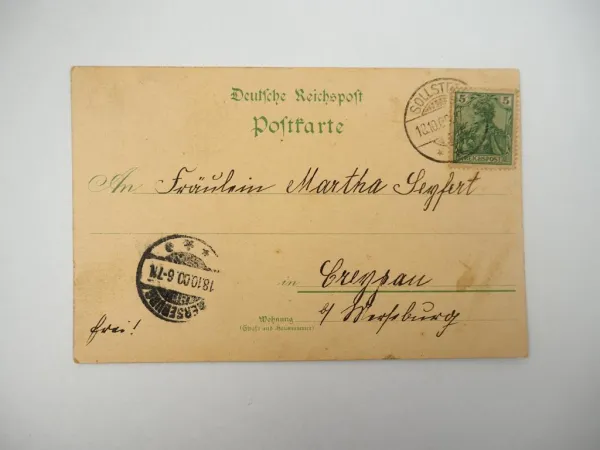 Deutsche Reichspost
Postkarte
SOLLST
18.10.00
5 5
REICHSPOST
An Fräulein Martha Seyfert
MERSEBURG
18.10.00.6-7N.
in Creypau
b/ Merseburg
Wohnung
(Straße und Hausnummer)
frei!